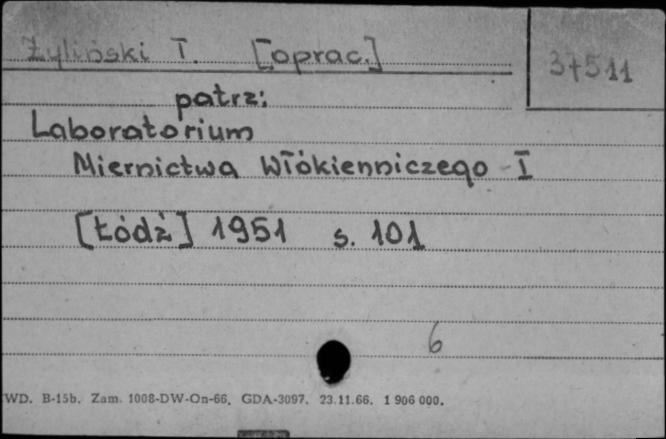 Żyliński T. [oprac.]
37511
patrz:
Laboratorium
Miernictwa Włókienniczego I
[Łódź] 1951 s. 101
6
WD. B-15b. Zam. 1008-DW-On-66. GDA-3097. 23.11.66. 1 906 000.